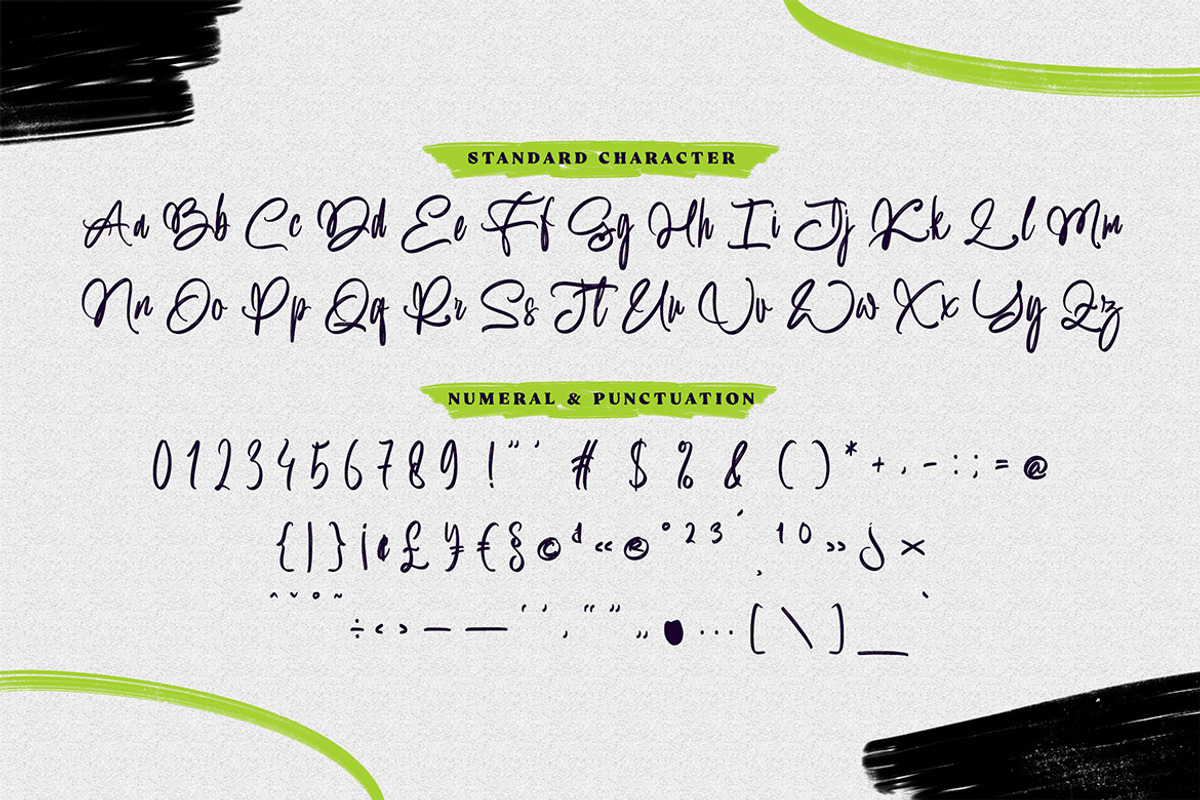 STANDARD CHARACTER
Aa Bb Cc Dd Ee Ff Gg Hh Ii Jj Kk Ll Mm
Nn Oo Pp Qq Rr Ss Tt Uu Vv Ww Xx Yy Zz
NUMERAL & PUNCTUATION
0 1 2 3 4 5 6 7 8 9 ! " ' # $ % & ( ) * + , - : ; = @
{ | } ¡ ¢ £ ¥ € § © ª « ® ° 2 3 ´ ¸ 1 0 » ¿ ×
ˆ ˇ ˚ ˜ ÷ ‹ › – — ‘ ’ ‚ “ ” „ • … [ \ ] _ `